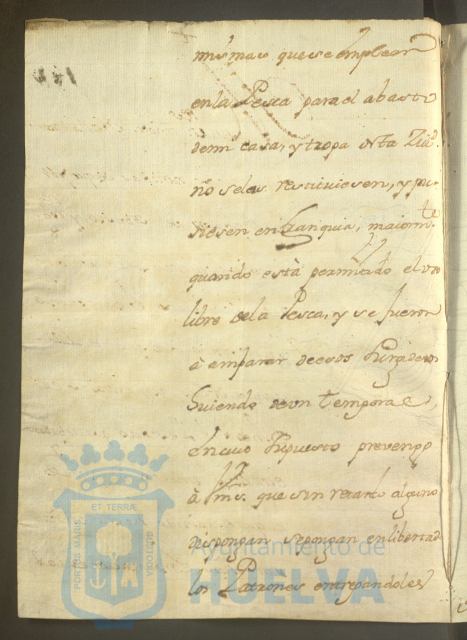 mismas que se emplean
en la Pesca para el abasto
de mi casa, y tropa de esta Ziud.
no se les restituiesen, y pu-
siesen en franquia, maiorm.te
quando està permitido el uso
libre de la Pesca, y se fueron
à amparar de esos
huiendo de un temporal,
en cuio supuesto prevengo
à Vms. que sin retardo alguno
dispongan se pongan en libertad
los Patrones entregandoles
PORTUS MARIS ET TERRÆ CUSTODIA
Ayuntamiento de
HUELVA